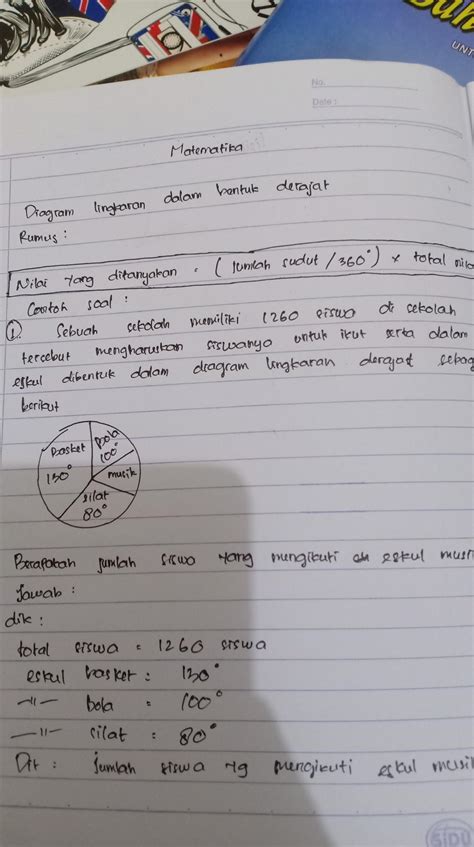 UNT
No.
Date :
Matematika
Diagram lingkaran dalam bentuk derajat
Rumus :
Nilai yang ditanyakan = ( Jumlah sudut / 360° ) x total nila
Contoh soal :
①. Sebuah sekolah memiliki 1260 siswa di sekolah
tersebut mengharuskan siswanya untuk ikut serta dalam
eskul dibentuk dalam diagram lingkaran derajat sebag
berikut
Basket
130°
bola
100°
musik
silat
80°
Berapakah jumlah siswa yang mengikuti eskul musi
Jawab :
dik :
total siswa = 1260 siswa
eskul basket : 130°
-11- bola = 100°
-11- silat = 80°
Dit : Jumlah siswa yg mengikuti eskul musi
SIDU